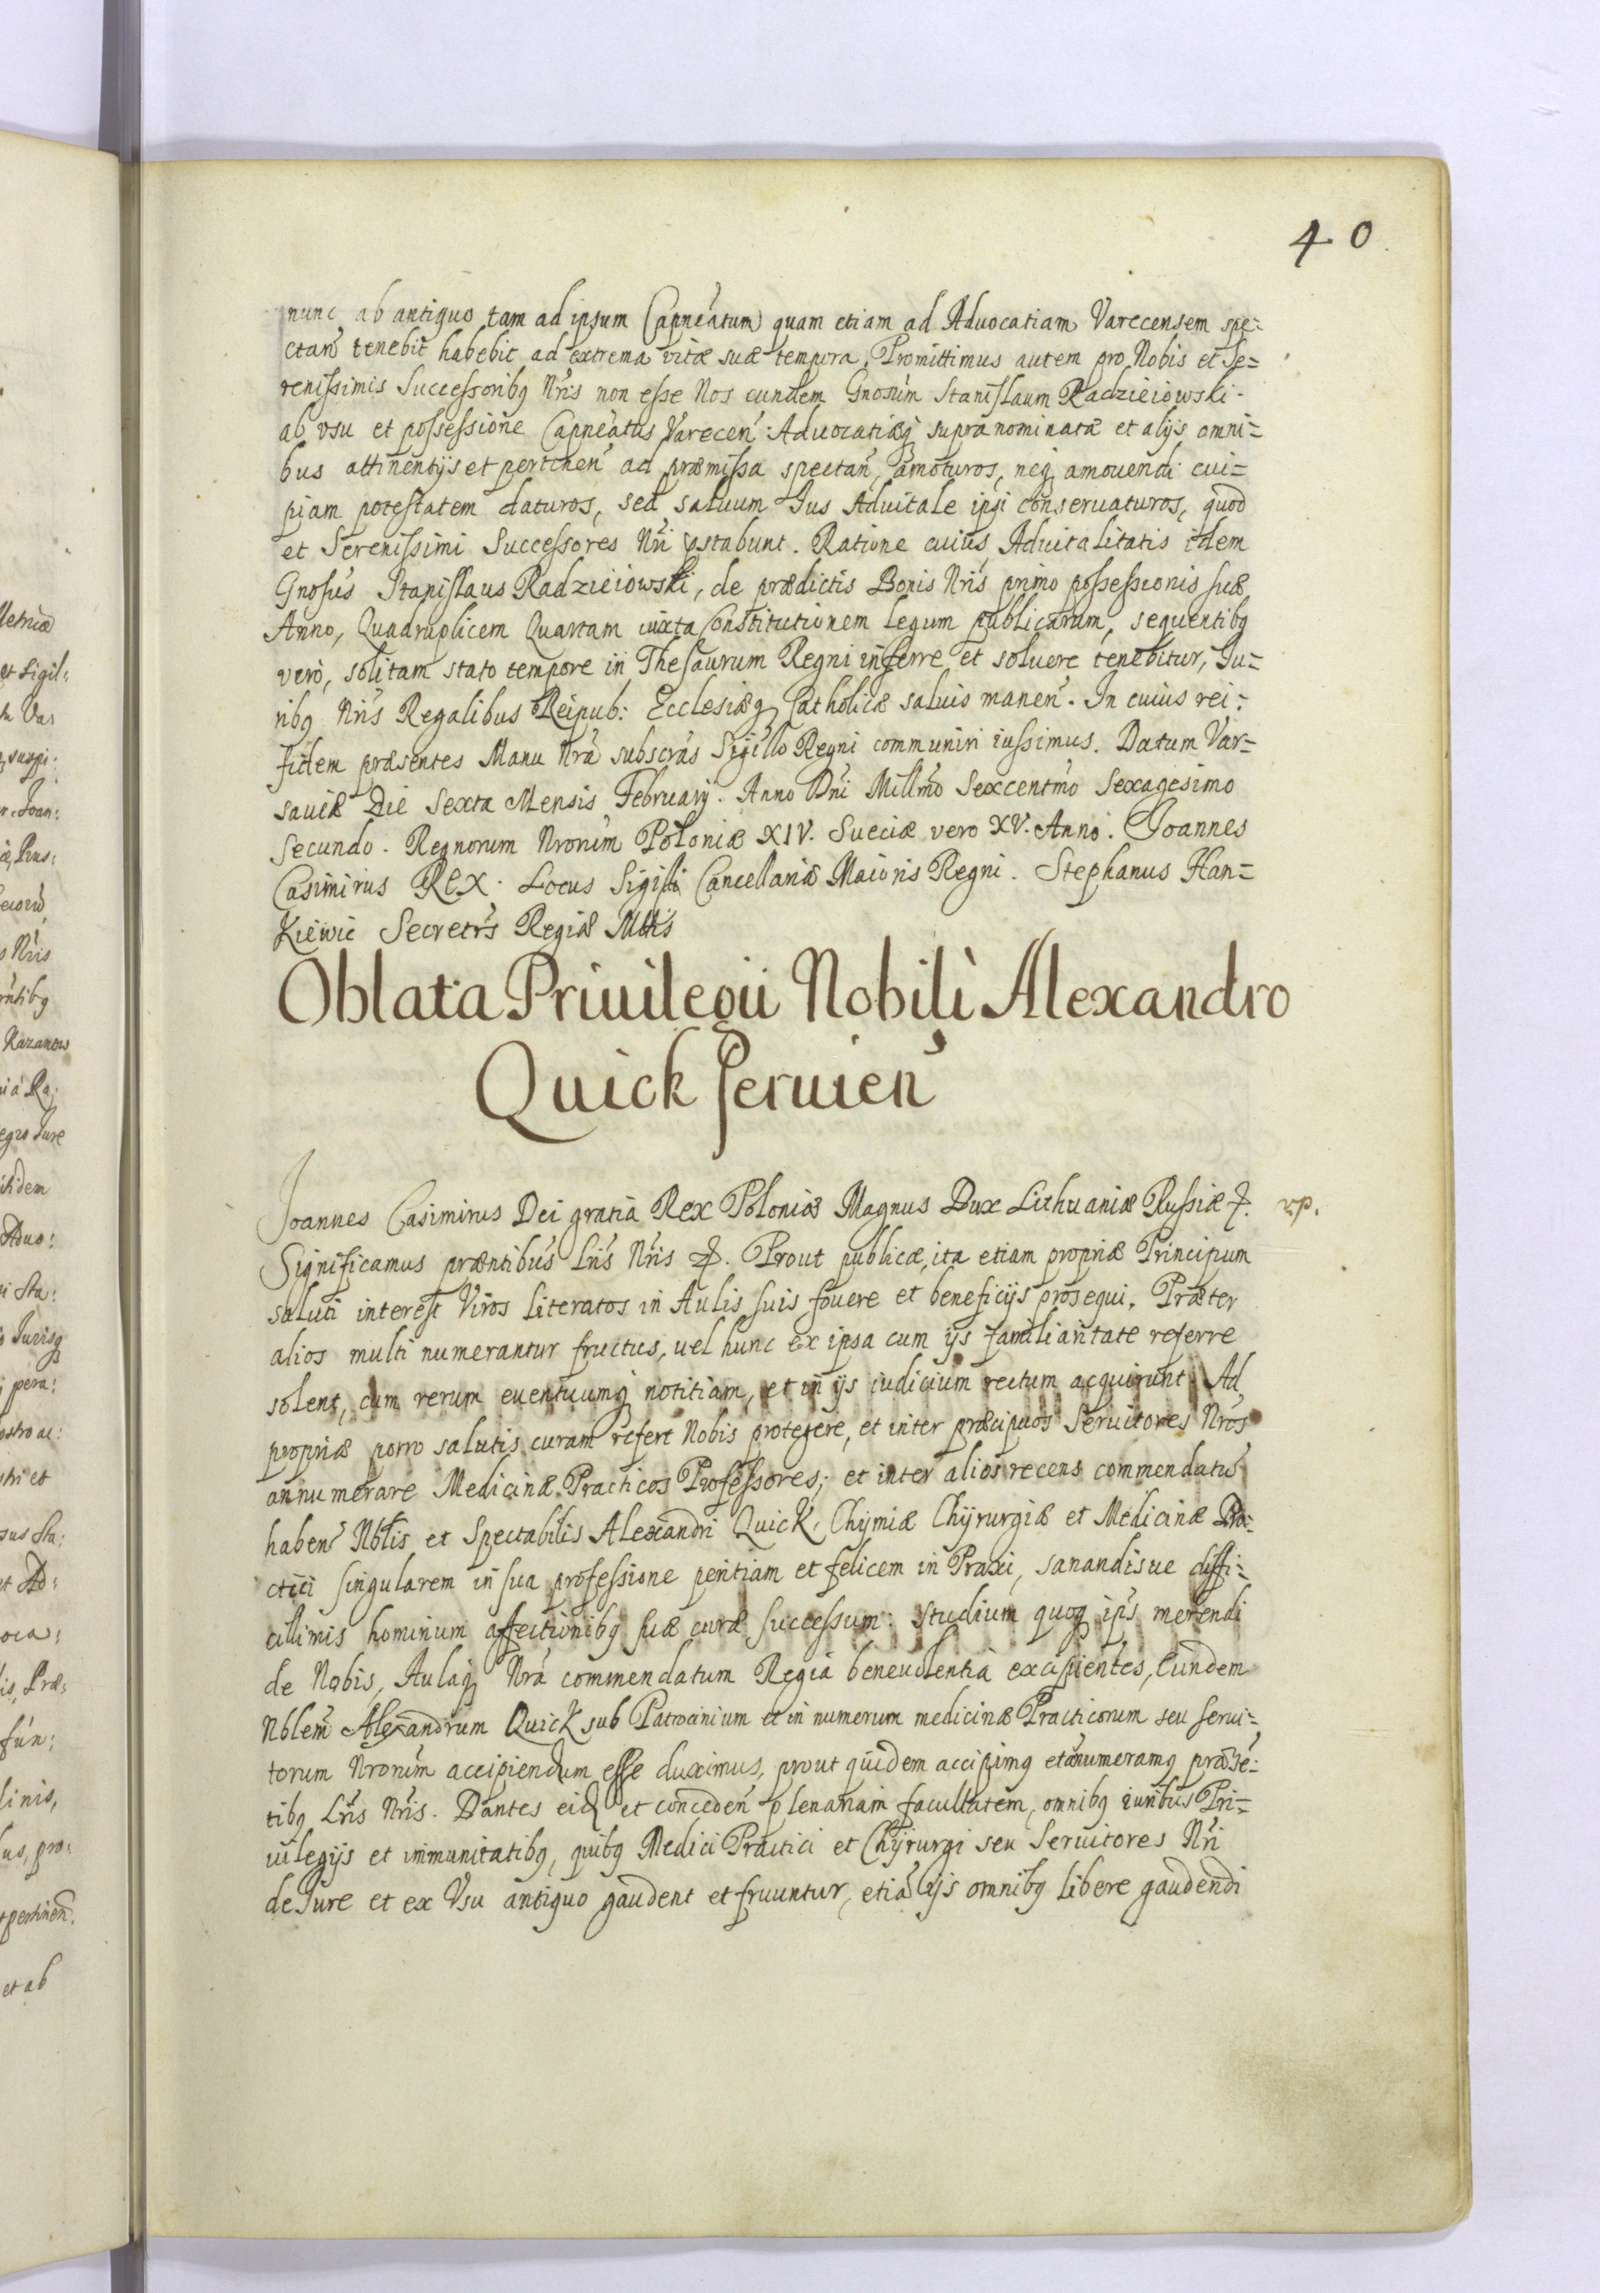 40
nunc ab antiquo tam ad ipsum Capneatum quam etiam ad Advocatiam Varecensem spe=
ctan̄ tenebit habebit ad extrema vitæ suæ tempora. Promittimus autem pro Nobis et Se=
renissimis Successoribq Nris non esse Nos eundem Gnosum Stanislaum Radzieiowski
ab vsu et possessione Capneatus Varecen: Advocatiæq supra nominatæ et alijs omni=
bus attinentijs et pertinen ad præmissa spectan, amoturos, neq amouendi cui=
piam potestatem daturos, sed saluum Jus Aduitale ipsi conseruaturos, quod
et Serenissimi Successores Nri pstabunt. Ratione cuius Aduitalitatis idem
Gnosus Stanislaus Radzieiowski, de prædictis Bonis Nris primo possessionis suæ
Anno, Quadruplicem Quartam iuxta Constitutionem legum publicarum, sequentibq
verò, solitam stato tempore in Thesaurum Regni inferre et soluere tenebitur, Ju=
ribq Nris Regalibus Reipub: Ecclesiæq Catholicæ saluis manen. In cuius rei:
fidem præsentes Manu Nra subscras Sigillo Regni communiri iussimus. Datum Var=
saviæ Die Sexta Mensis Februarij. Anno Dni Millmo Sexcentmo Sexagesimo
Secundo. Regnorum Nrorum Poloniæ XIV. Sueciæ vero XV. Anno. Joannes
Casimirus REX. Locus Sigilli Cancellariæ Maioris Regni. Stephanus Han=
Kiewic Secretrs Regiæ Mttis
Oblata Priuilegii Nobili Alexandro
Quick seruien
Joannes Casimirus Dei gratia Rex Poloniæ Magnus Dux Lithuaniæ Russiæ &. vp.
Significamus præntibus Lris Nris &. Prout publicæ, ita etiam propriæ Principum
saluti interest Viros literatos in Aulis suis fouere et beneficijs prosequi. Præter
alios multi numerantur fructus, uel hunc ex ipsa cum ijs familiaritate referre
solent, cum rerum euentuumq notitiam, et in ijs iudicium rectum acquirunt Ad
propriæ porro salutis curam refert Nobis protegere, et inter præcipuos Seruitores Nros
annumerare Medicinæ Practicos Professores; et inter alios recens commendatu
haben Nblis et Spectabilis Alexandri Quick, Chymiæ Chyrurgiæ et Medicinæ Pra=
ctici singularem in sua professione peritiam et felicem in Praxi, sanandisue diffi=
cillimis hominum affectionibq suæ curæ successum: Studium quoq ips merendi
de Nobis, Aulaq Nra commendatum Regia beneuolentia excipientes, Eundem
Nblem Alexandrum Quick sub Patrocinium et in numerum medicinæ Practicorum seu serui=
torum Nrorum accipiendum esse duximus, prout quidem accipimq etanumeramq præse=
tibq Lris Nris. Dantes eid et conceden plenariam facultatem, omnibq iuribus Pri=
uilegijs et immunitatibq, quibq Medici Practici et Chyrurgi seu Seruitores Nri
de Jure et ex Vsu antiquo gaudent et fruuntur, etia ijs omnibq libere gaudendi